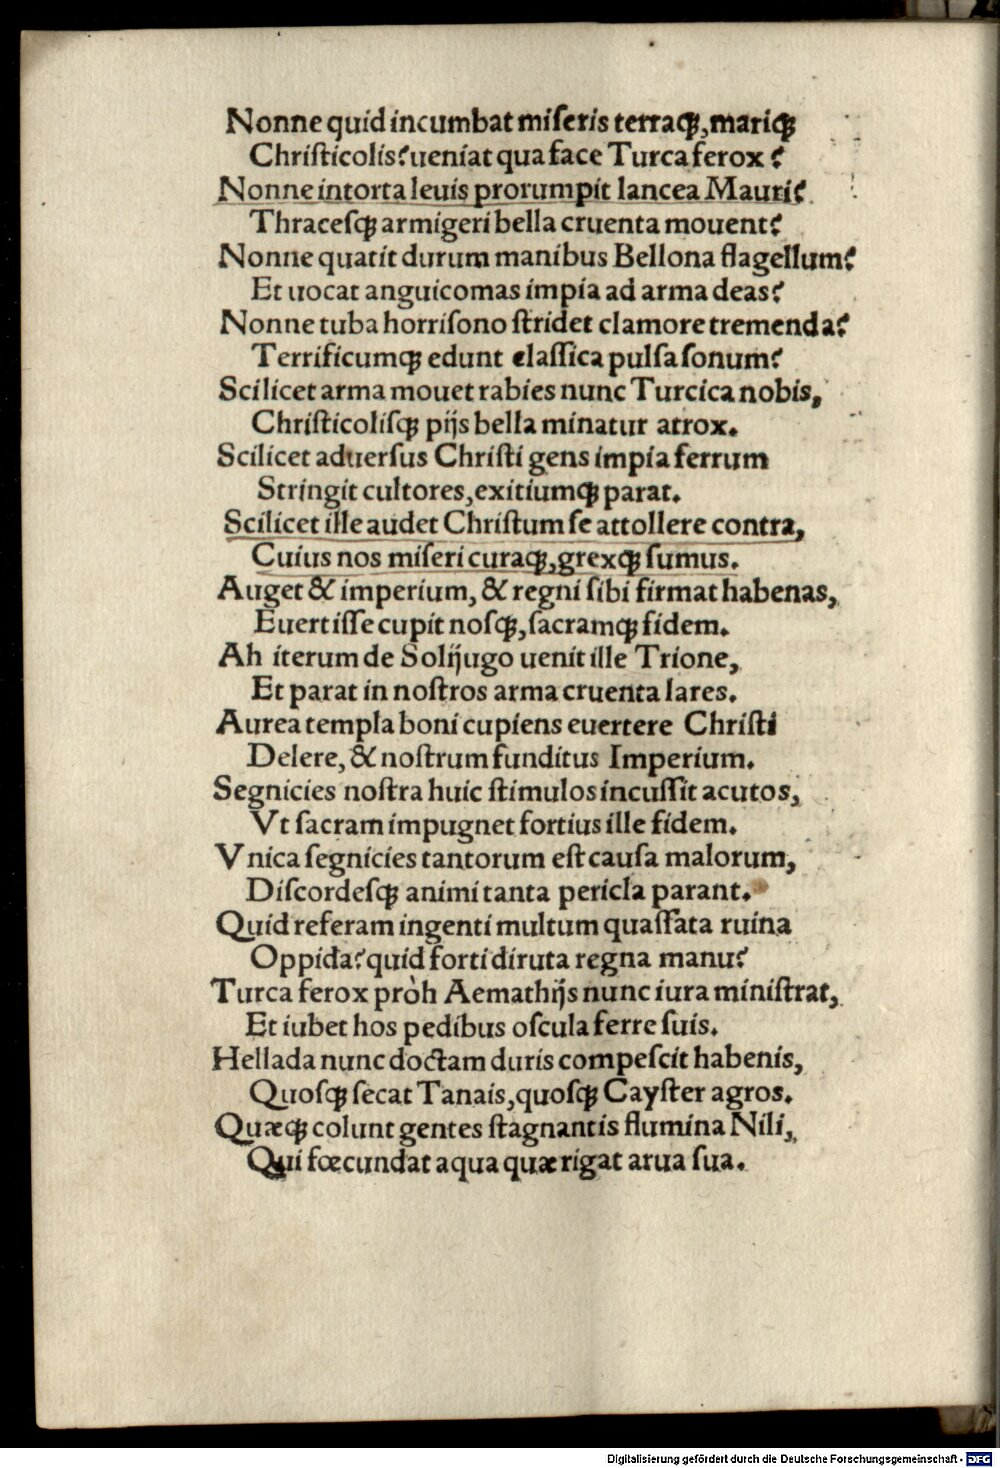 Nonne quid incumbat miſeris terraꝗ, mariꝗ
Chriſticolis? ueniat qua face Turca ferox?
Nonne intorta leuis prorumpit lancea Mauri?
Thraceſꝗ armigeri bella cruenta mouent?
Nonne quatit durum manibus Bellona flagellum?
Et uocat anguicomas impia ad arma deas?
Nonne tuba horriſono ſtridet clamore tremenda?
Terrificumꝗ edunt claſſica pulſa ſonum?
Scilicet arma mouet rabies nunc Turcica nobis,
Chriſticoliſꝗ pijs bella minatur atrox.
Scilicet aduerſus Chriſti gens impia ferrum
Stringit cultores, exitiumꝗ parat.
Scilicet ille audet Chriſtum ſe attollere contra,
Cuius nos miſeri curaꝗ, grexꝗ ſumus.
Auget & imperium, & regni ſibi firmat habenas,
Euertiſſe cupit noſꝗ, ſacramꝗ fidem.
Ah iterum de Solijugo uenit ille Trione,
Et parat in noſtros arma cruenta lares.
Aurea templa boni cupiens euertere Chriſti
Delere, & noſtrum funditus Imperium.
Segnicies noſtra huic ſtimulos incuſſit acutos,
Vt ſacram impugnet fortius ille fidem.
Vnica ſegnicies tantorum eſt cauſa malorum,
Diſcordeſꝗ animi tanta pericla parant.
Quid referam ingenti multum quaſſata ruina
Oppida? quid forti diruta regna manu?
Turca ferox pròh Aemathijs nunc iura miniſtrat,
Et iubet hos pedibus oſcula ferre ſuis.
Hellada nunc doctam duris compeſcit habenis,
Quoſꝗ ſecat Tanais, quoſꝗ Cayſter agros.
Quæꝗ colunt gentes ſtagnantis flumina Nili,
Qui fœcundat aqua quæ rigat arua ſua.
Digitalisierung gefördert durch die Deutsche Forschungsgemeinschaft - DFG